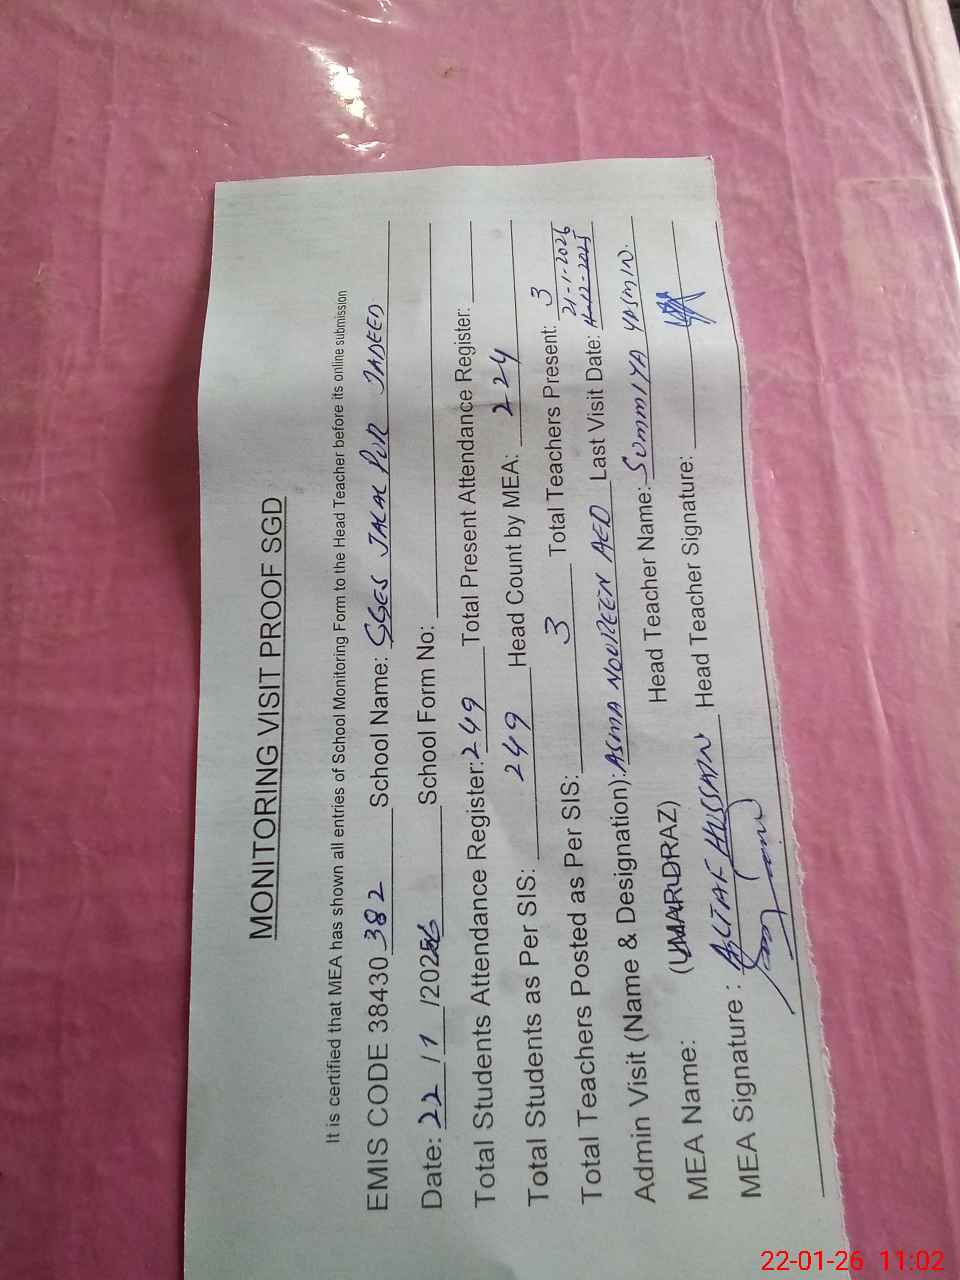 MONITORING VISIT PROOF SGD
It is certified that MEA has shown all entries of School Monitoring Form to the Head Teacher before its online submission
EMIS CODE 38430 382 School Name: GGES JALAL PUR JADEED
Date: 22 / 1 /2026 School Form No:
Total Students Attendance Register: 249 Total Present Attendance Register:
Total Students as Per SIS: 249 Head Count by MEA: 224
Total Teachers Posted as Per SIS: 3 Total Teachers Present: 3
21-1-2026
Admin Visit (Name & Designation): ASMA NOUREEN AEO Last Visit Date:
MEA Name: (UMAR DRAZ) Head Teacher Name: SUMMIYA YASMIN.
ALTAF HUSSAIN
MEA Signature : Head Teacher Signature:
22-01-26 11:02